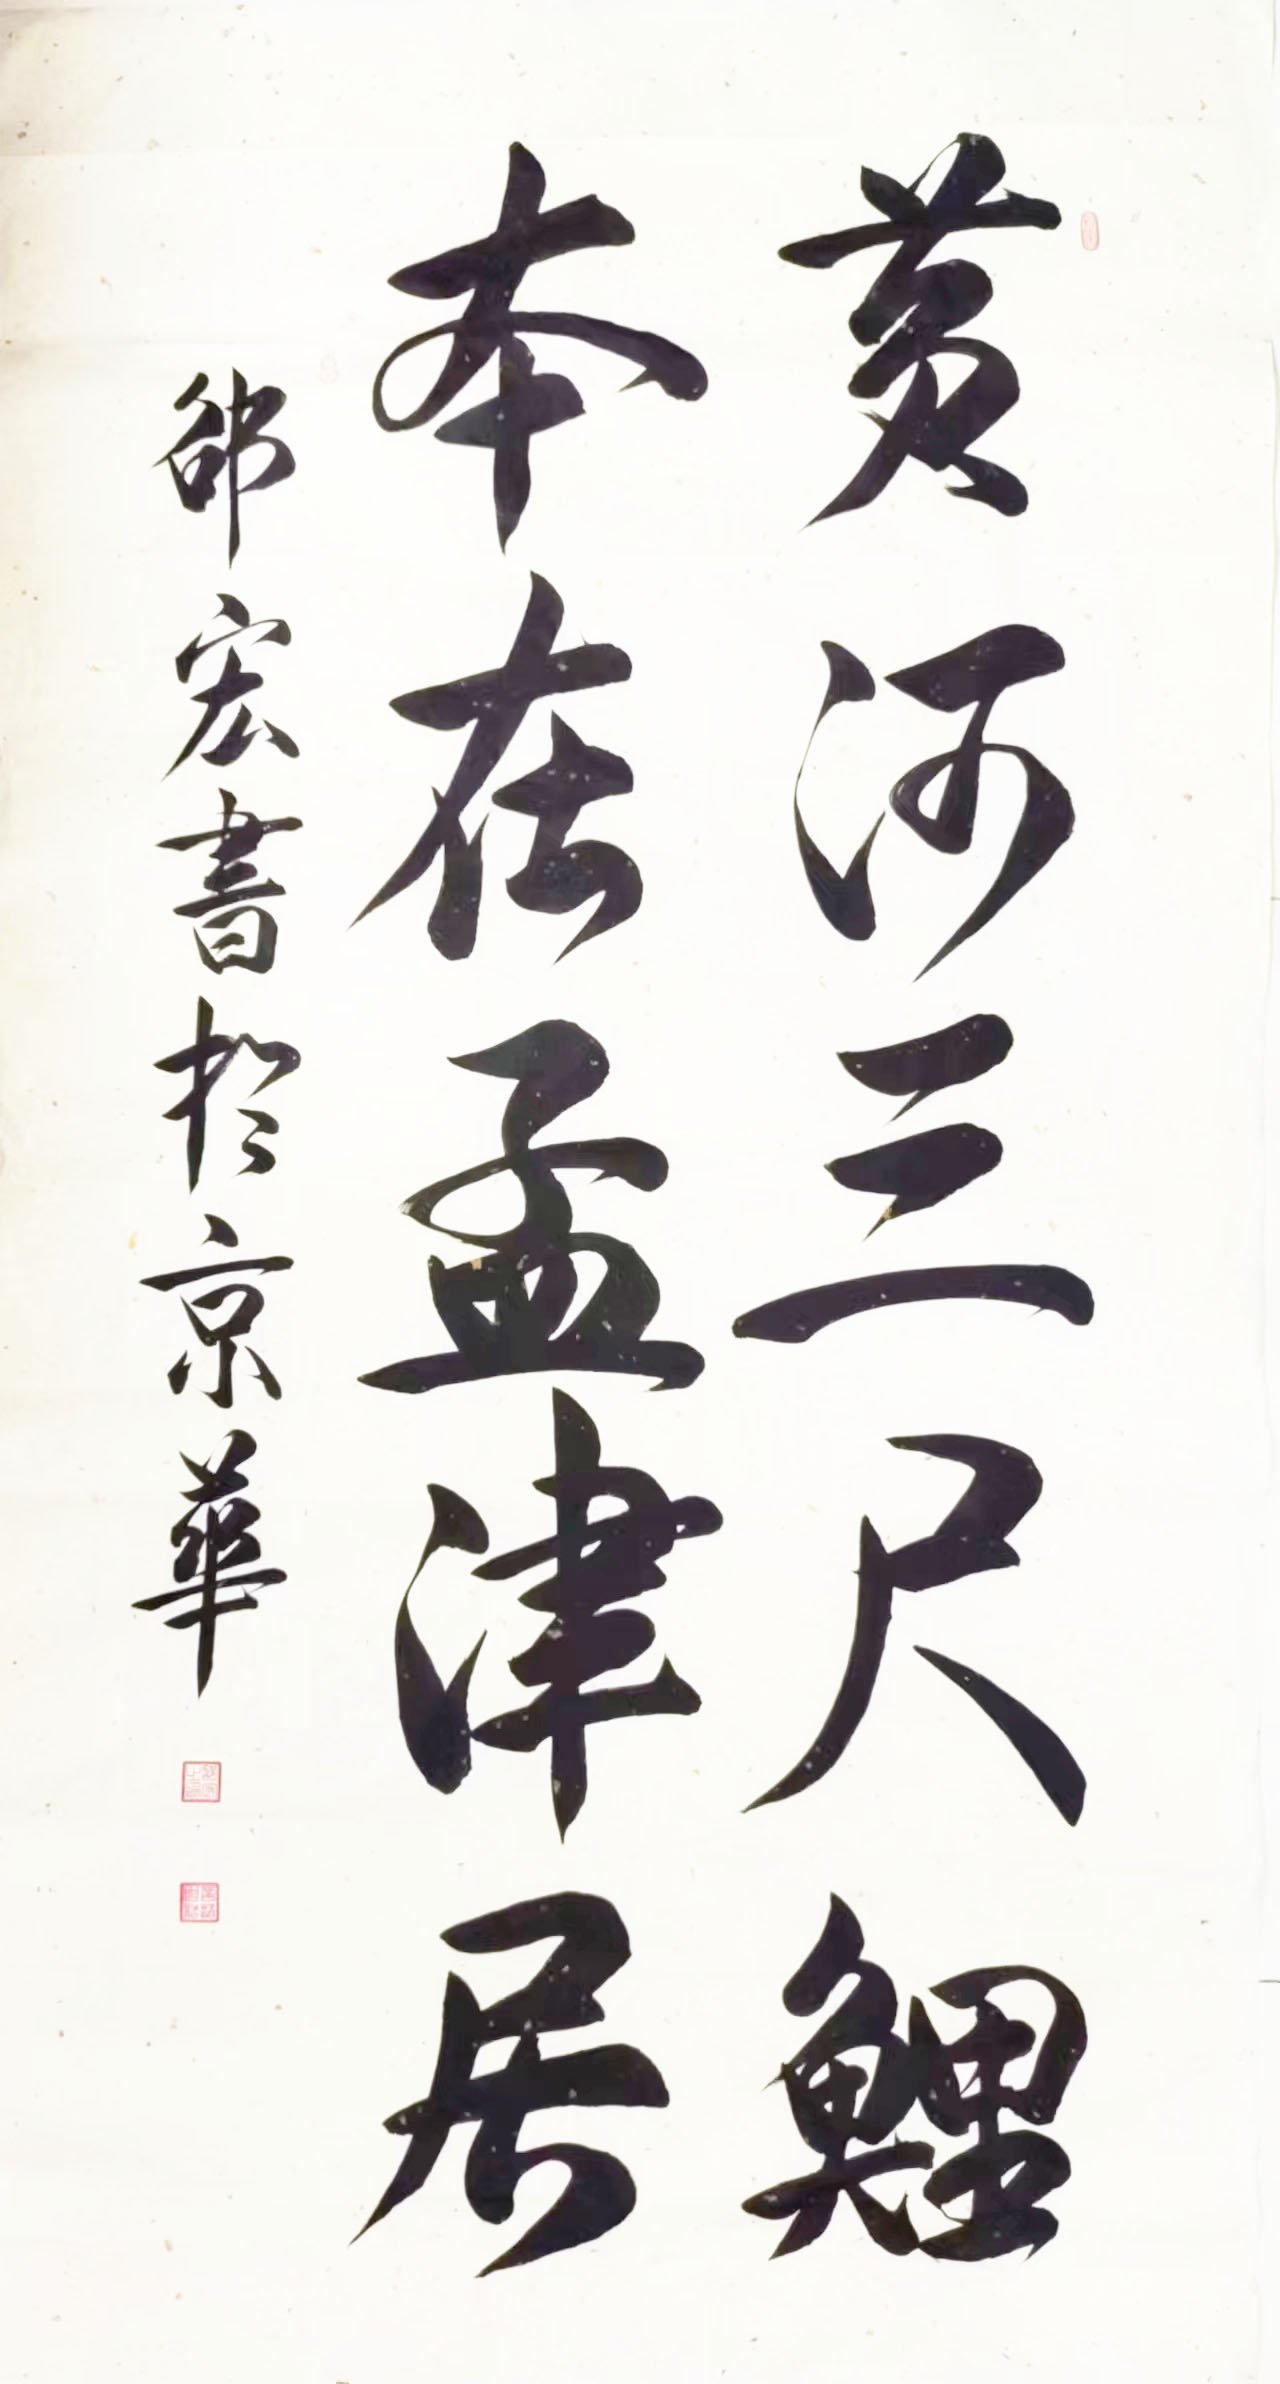 黄河三尺鯉
本在孟津居
邵宏書於京華